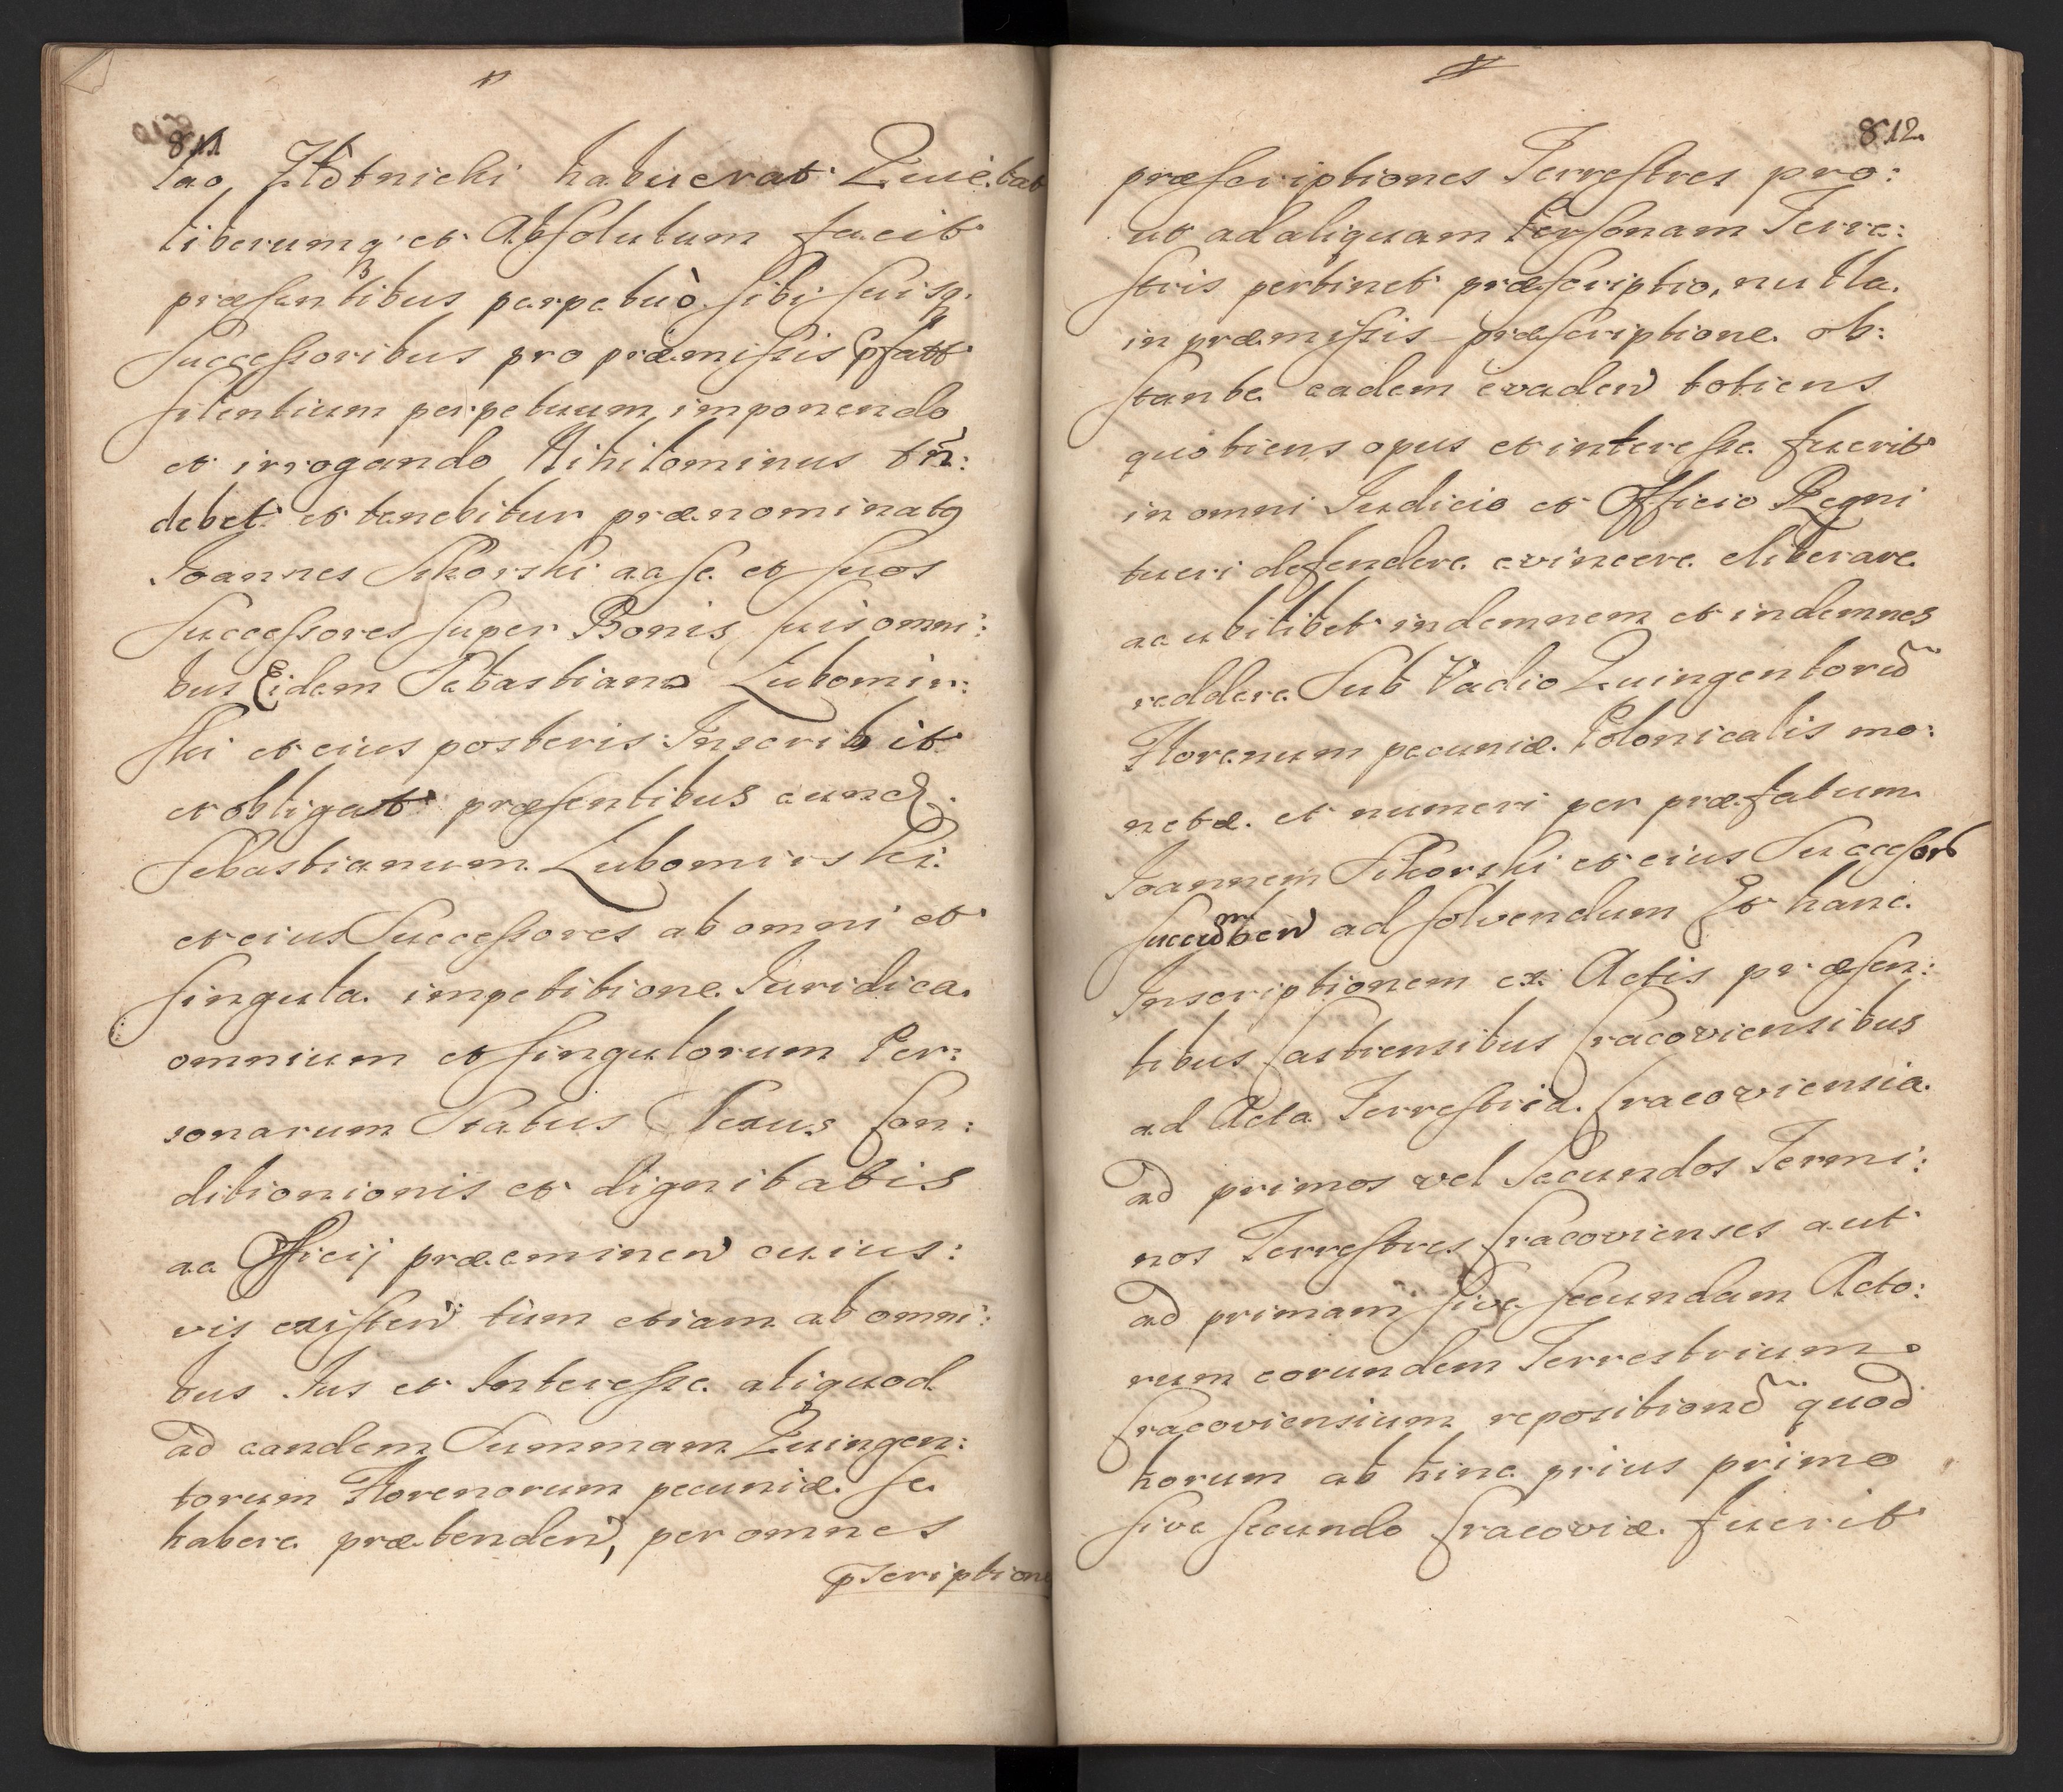 811
lao, Złotnicki habuerat Quietat
liberumq; et Absolutum facit
præsentibus perpetuò sibi suisq;
Successoribus pro præmissis Præfatt
silentium perpetuum imponendo
et irrogando Nihilominus tñ:
debet et tenebitur prænominatq
Joannes Sikorski a se et suos
Successores super Bonis suis omni:
bus Eidem Sebastiano Lubomir:
ski et eius posteris Inscribit
et obligat præsentibus eund
Sebastianum Lubomirski
et eius Successores ab omni et
singula impetitione Iuridica
omnium et singulorum Per:
sonarum Status Sexus Con:
ditionionis et dignitatis
ac Officij præeminen cuius:
vis existen tùm etiam ab omni:
bus Ius et Interesse aliquod
ad eandem Summam Quingen:
torum Florenorum pecuniæ se
habere prætenden, per omnes
pscriptiones
812.
præscriptiones Terrestres pro:
ut ad aliquam Personam Terre:
stris pertinet præscriptio, nulla
in præmissis præscriptione ob:
stante eadem evaden totiens
quotiens opus et interesse fuerit
in omni Iudicio et Officio Regni
tueri defendere evincere eliberare
ac ubilibet indemnem et indemnes
reddere Sub Vadio Quingentorũ
Florenum pecuniæ Polonicalis mo:
netæ et numeri per præfatum
Joannem Sikorski et eius Successor
succumben ad solvendum Et hanc
Inscriptionem ex Actis præsen:
tibus Castrensibus Cracoviensibus
ad Acta Terrestria Cracoviensia
ad primos vel Secundos Termi:
nos Terrestres Cracovienses aut
ad primam sive secundam Acto:
rum eorundem Terrestrium
Cracoviensium reposition quod
horum ab hinc prius primo
sive secundo Cracoviæ fuerit